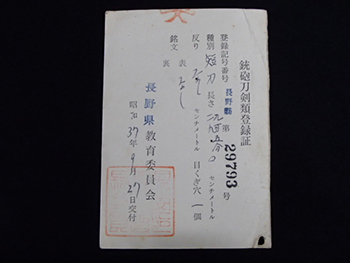 銃砲刀剣類登録証
登録記号番号 長野縣 第 29793 号
種別 短刀 長さ 二九四五 センチメートル
反り なし センチメートル 目くぎ穴 一 個
銘文 表 なし
裏
長野県教育委員会
昭和 37 年 9 月 27 日交付